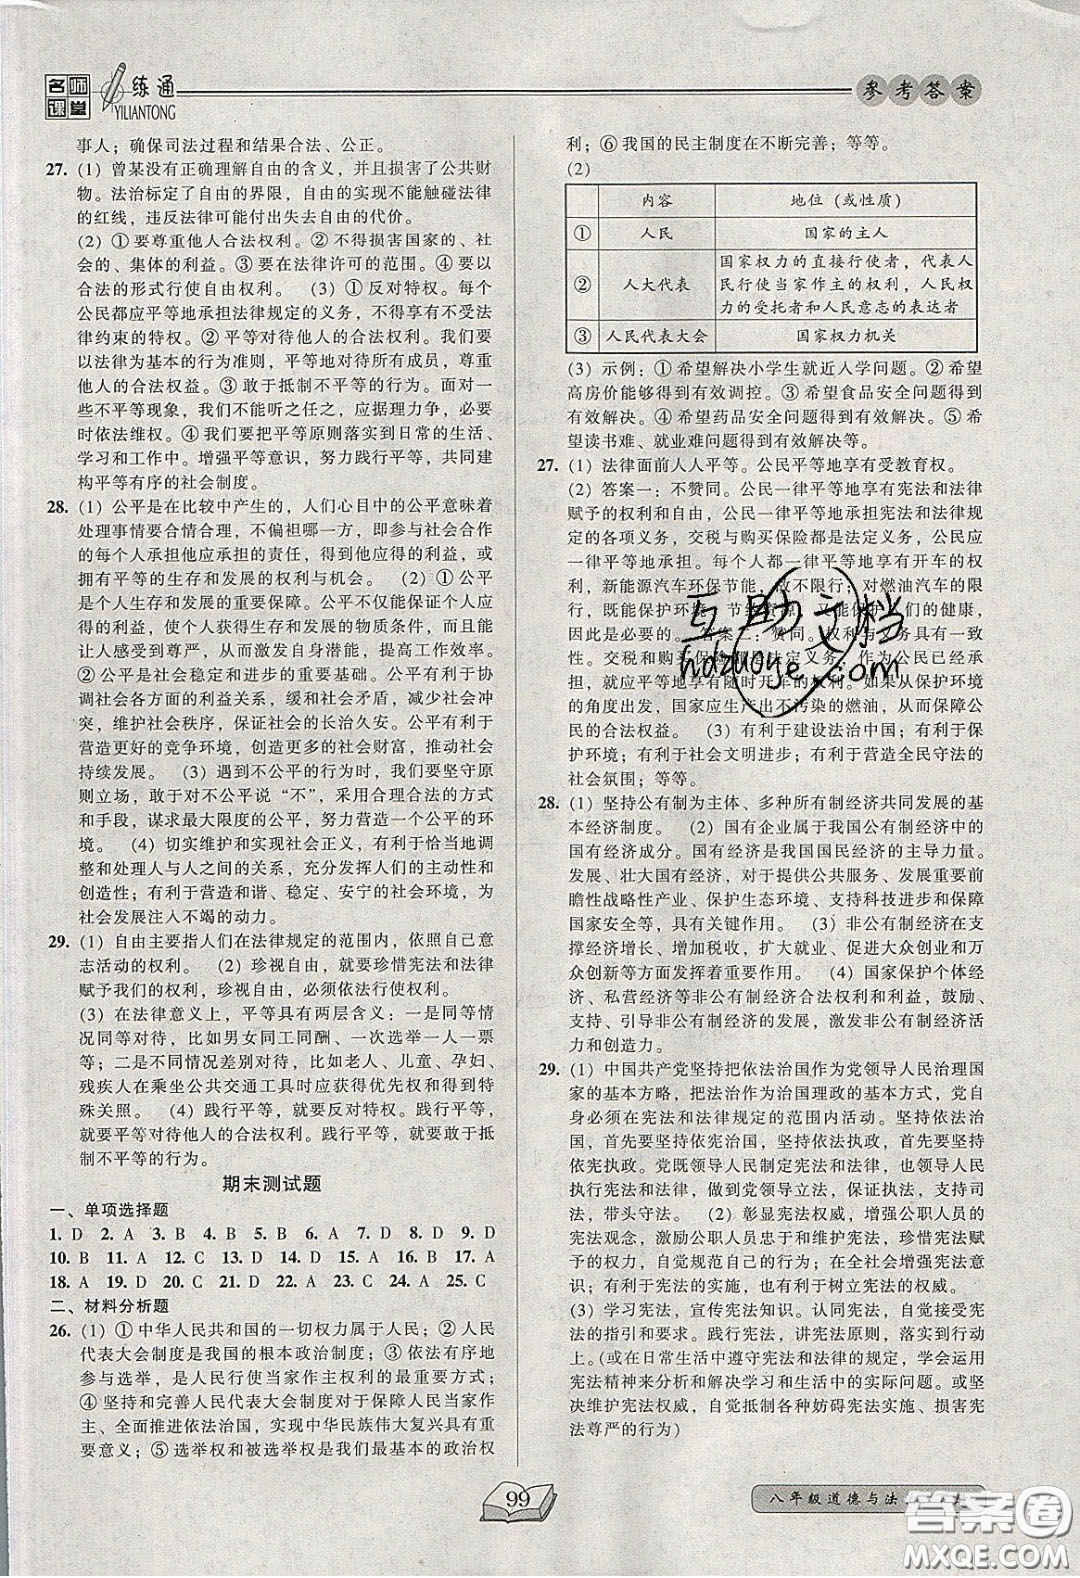 名师课堂
一练通
YILIANTONG
参考答案
事人；确保司法过程和结果合法、公正。
27. (1) 曾某没有正确理解自由的含义，并且损害了公共财
物。法治标定了自由的界限，自由的实现不能触碰法律
的红线，违反法律可能付出失去自由的代价。
(2) ① 要尊重他人合法权利。② 不得损害国家的、社会
的、集体的利益。③ 要在法律许可的范围。④ 要以
合法的形式行使自由权利。 (3) ① 反对特权。每个
公民都应平等地承担法律规定的义务，不得享有不受法
律约束的特权。② 平等对待他人的合法权利。我们要
以法律为基本的行为准则，平等地对待所有成员，尊重
他人的合法权益。③ 敢于抵制不平等的行为。面对一
些不平等现象，我们不能听之任之，应据理力争，必要
时依法维权。④ 我们要把平等原则落实到日常的生活、
学习和工作中。增强平等意识，努力践行平等，共同建
构平等有序的社会制度。
28. (1) 公平是在比较中产生的，人们心目中的公平意味着
处理事情要合情合理，不偏袒哪一方，即参与社会合作
的每个人承担他应承担的责任，得到他应得的利益，或
拥有平等的生存和发展的权利与机会。 (2) ① 公平
是个人生存和发展的重要保障。公平不仅能保证个人应
得的利益，使其获得生存和发展的物质条件，而且能
让人感受到尊严，从而激发自身潜能，提高工作效率。
② 公平是社会稳定和进步的重要基础。公平有利于协
调社会各方面的利益关系，缓和社会矛盾，减少社会冲
突，维护社会秩序，保证社会的长治久安。公平有利于
营造更好的竞争环境，创造更多的社会财富，推动社会
持续发展。 (3) 遇到不公平的行为时，我们要坚守原
则立场，敢于对不公平说“不”，采用合理合法的方式
和手段，谋求最大限度的公平，努力营造一个公平的
环境。 (4) 切实维护和实现社会公平，有利于恰当地调
整和处理人与人之间的关系，充分发挥人们的主动性和
创造性；有利于营造和谐、稳定、安宁的社会环境，为
社会发展注入不竭的动力。
29. (1) 自由主要指人们在法律规定的范围内，依照自己意
志活动的权利。 (2) 珍视自由，就要珍惜宪法和法律
赋予我们的权利，珍视自由，必须依法行使权利。
(3) 在法律意义上，平等具有两层含义：一是同等情
况同等对待，比如男女同工同酬、一次选举一人一票
等；二是不同情况差别对待，比如老人、儿童、孕妇、
残疾人在乘坐公共交通工具时应获得优先和得到特
殊关照。 (4) 践行平等，就要反对特权。践行平等，
就要平等对待他人的合法权利。践行平等，就要敢于抵
制不平等的行为。
期末测试题
一、单项选择题
1. D 2. A 3. B 4. C 5. B 6. C 7. B 8. D 9. D
10. B 11. A 12. C 13. D 14. A 15. A 16. B 17. A
18. A 19. D 20. C 21. C 22. A 23. C 24. A 25. C
二、材料分析题
26. (1) ① 中华人民共和国的一切权力属于人民；② 人民
代表大会制度是我国的根本政治制度；③ 依法有序地
参与选举，是人民行使当家作主权利的重要途径；
④ 坚持和完善人民代表大会制度对于保障人民当家作
主、全面推进依法治国，实现中华民族伟大复兴具有重
要意义；⑤ 选举权和被选举权是我们最基本的政治权
利；⑥ 我国的民主制度在不断完善；等等。
(2)
内容 地位（或性质）
① 人民 国家的主人
② 人大代表 国家权力的直接行使者，代表人
民行使当家作主的权利，人民权
力的受托者和人民意志的表达者
③ 人民代表大会 国家权力机关
(3) 示例：① 希望解决小学生就近入学问题。② 希望
高房价能够得到有效调控。③ 希望食品安全问题得到
有效解决。④ 希望药品安全问题得到有效解决。⑤ 希
望读书难、就业难问题得到有效解决等。
27. (1) 法律面前人人平等。公民平等地享有受教育权。
(2) 答案一：不赞同。公民一律平等地享有宪法和法律
赋予的权利和自由，公民一律平等地承担宪法和法律规定
的各项义务，交税与购买保险都是法定义务，公民应
一律平等地承担。每个人都一律平等地享有开车的权
利，新能源汽车环保节能，故不限行；对燃油汽车的限
行，既能保护环境、节约资源，又能保护人们的健康，
因此是必要的。答案二：赞同。权利与义务具有一致
性。交税和购买保险都是法定义务，作为公民已经承
担，就应平等地享有随时开车的权利。如果从保护环境
的角度出发，国家应生产出不污染的燃油，从而保障公
民的合法权益。 (3) 有利于建设法治中国；有利于保
护环境；有利于社会文明进步；有利于营造全民守法的
社会氛围；等等。
28. (1) 坚持公有制为主体、多种所有制经济共同发展的基
本经济制度。 (2) 国有企业属于我国公有制经济中的
国有经济成分。国有经济是我国国民经济的主导力量。
发展、壮大国有经济，对于提供公共服务、发展重要前
瞻性战略性产业、保护生态环境、支持科技进步和保障
国家安全等，具有关键作用。 (3) 非公有制经济在支
撑经济增长、增加税收，扩大就业、促进大众创业和万
众创新等方面发挥着重要作用。 (4) 国家保护个体经
济、私营经济等非公有制经济合法权利和利益，鼓励、
支持、引导非公有制经济的发展，激发非公有制经济活
力和创造力。
29. (1) 中国共产党坚持把依法治国作为党领导人民治理国
家的基本方略，把法治作为治国理政的基本方式，党自
身必须在宪法和法律规定的范围内活动。坚持依法治
国，首先要坚持依宪治国，坚持依法执政，首先要坚持
依宪执政。党既领导人民制定宪法和法律，也领导人民
执行宪法和法律，做到党领导立法、保证执法、支持司
法、带头守法。 (2) 彰显宪法权威，增强公职人员的
宪法观念，激励公职人员忠于和维护宪法，珍惜宪法赋
予的权力，自觉规范自己的行为；在全社会增强宪法意
识；有利于宪法的实施，也有利于树立宪法的权威。
(3) 学习宪法，宣传宪法知识。认同宪法，自觉接受宪
法的指引和要求。践行宪法，讲宪法原则，落实到行动
上。(或在日常生活中遵守宪法和法律的规定，学会运用
宪法精神来分析和解决学习和生活中的实际问题。或坚
决维护宪法权威，自觉抵制各种妨碍宪法实施、损害宪
法尊严的行为)
互助文档
hdzuoye.com
99
八年级道德与法
答案圈
MXQE.COM